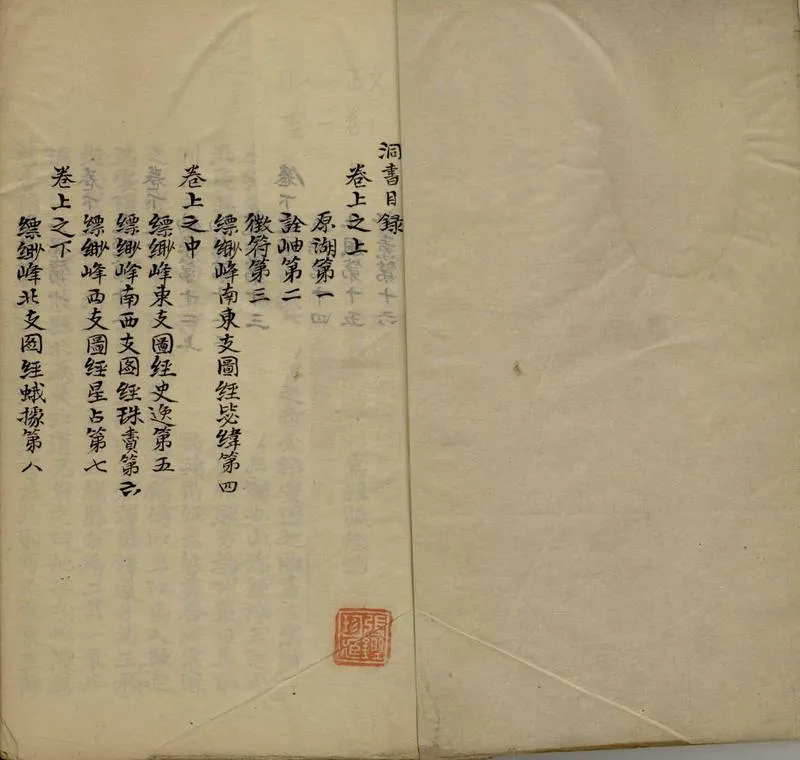 洞書目録
卷上之上
原湖第一
詮岫第二
徵符第三
縹緲峰南東支圖經毖緯第四
卷上之中
縹緲峰東支圖經史逸第五
縹緲峰南西支图經珠賣第六
縹緲峰西支圖經星占第七
卷上之下
縹緲峰北支図經蛾據第八
張鑑
珍藏